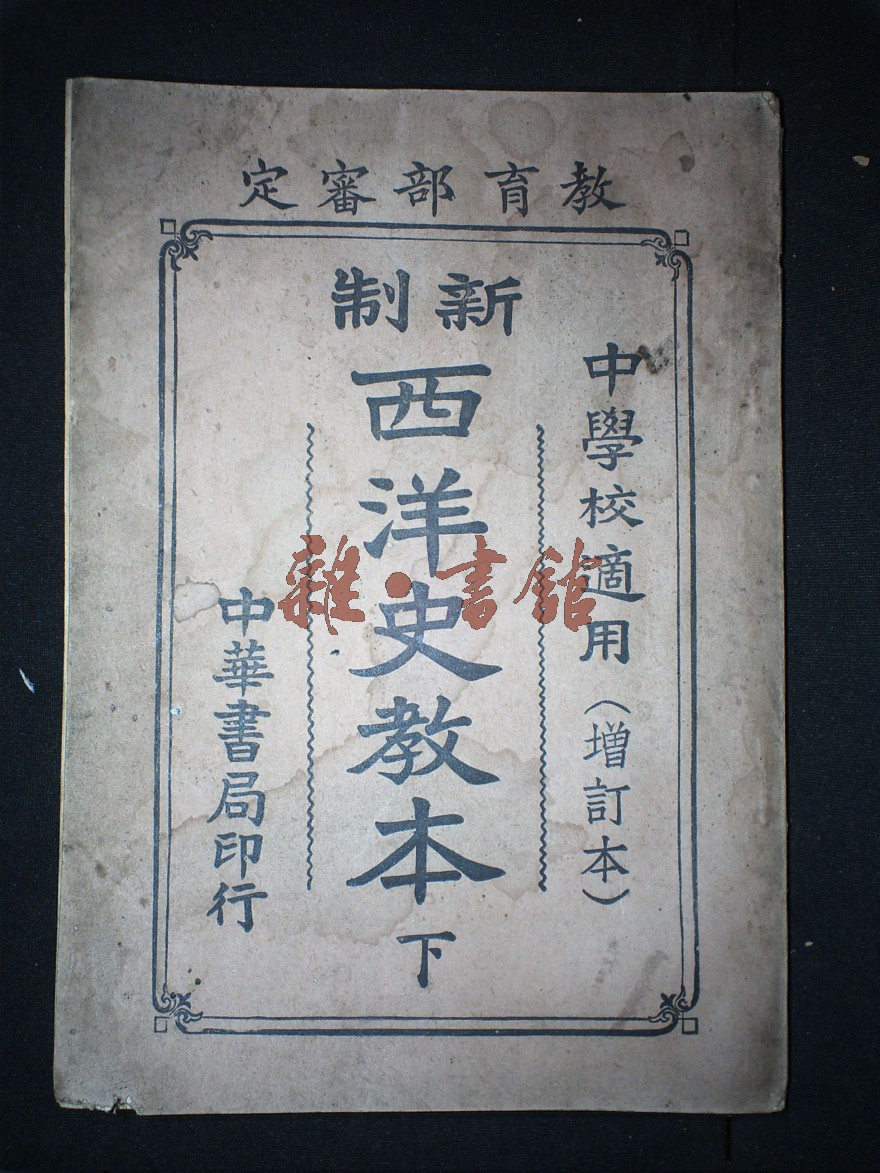 教育部審定
新制
中學校適用（增訂本）
西洋史教本下
中華書局印行
雜·書館